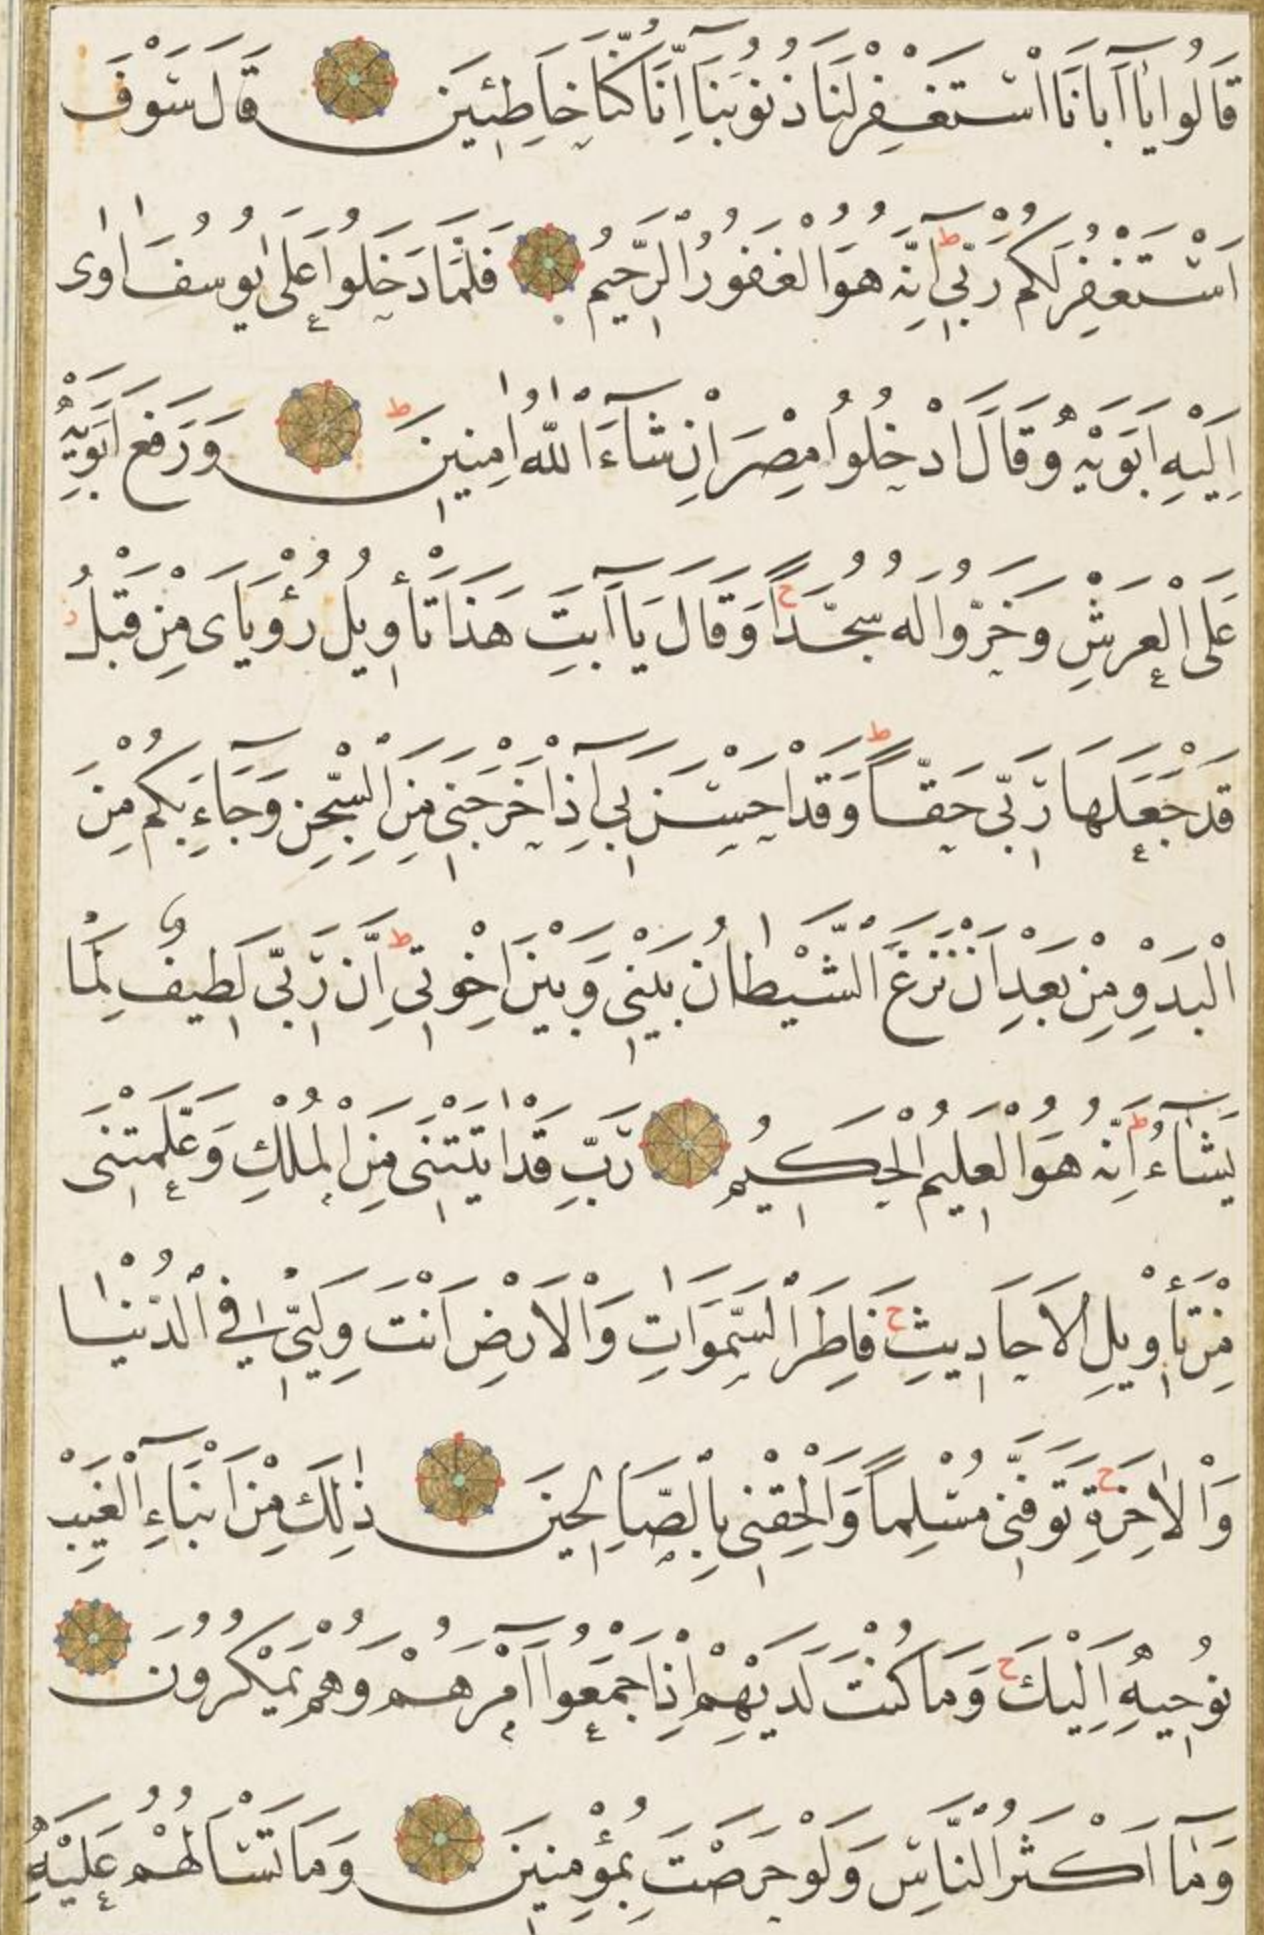 قَالُوا يَٓا اَبَانَا اسْتَغْفِرْ لَنَا ذُنُوبَنَٓا اِنَّا كُنَّا خَاطِئِينَ قَالَ سَوْفَ
اَسْتَغْفِرُ لَكُمْ رَبِّٓي اِنَّهُ هُوَ الْغَفُورُ الرَّحِيمُ فَلَمَّا دَخَلُوا عَلٰى يُوسُفَ اٰوٰى
اِلَيْهِ اَبَوَيْهِ وَقَالَ ادْخُلُوا مِصْرَ اِنْ شَٓاءَ اللّٰهُ اٰمِنِينَ وَرَفَعَ اَبَوَيْهِ
عَلَى الْعَرْشِ وَخَرُّوا لَهُ سُجَّدًا وَقَالَ يَٓا اَبَتِ هَذَا تَأْوِيلُ رُؤْيَاىَ مِنْ قَبْلُ
قَدْ جَعَلَهَا رَبِّى حَقًّا وَقَدْ اَحْسَنَ بِٓي اِذْ اَخْرَجَنِي مِنَ السِّجْنِ وَجَٓاءَ بِكُمْ مِنَ
الْبَدْوِ مِنْ بَعْدِ اَنْ نَزَغَ الشَّيْطَانُ بَيْنِي وَبَيْنَ اِخْوَتِي اِنَّ رَبِّى لَطِيفٌ لِمَا
يَشَٓاءُ اِنَّهُ هُوَ الْعَلِيمُ الْحَكِيمُ رَبِّ قَدْ اٰتَيْتَنِى مِنَ الْمُلْكِ وَعَلَّمْتَنِى
مِنْ تَأْوِيلِ الْاَحَادِيثِ فَاطِرَ السَّمٰوَاتِ وَالْاَرْضِ اَنْتَ وَلِيِّ فِي الدُّنْيَا
وَالْاٰخِرَةِ تَوَفَّنِى مُسْلِمًا وَاَلْحِقْنِى بِالصَّالِحِينَ ذٰلِكَ مِنْ اَنْبَٓاءِ الْغَيْبِ
نُوحِيهِ اِلَيْكَ وَمَا كُنْتَ لَدَيْهِمْ اِذْ اَجْمَعُٓوا اَمْرَهُمْ وَهُمْ يَمْكُرُونَ
وَمَٓا اَكْثَرُ النَّاسِ وَلَوْ حَرَصْتَ بِمُؤْمِنِينَ وَمَا تَسْاَلُهُمْ عَلَيْهِ